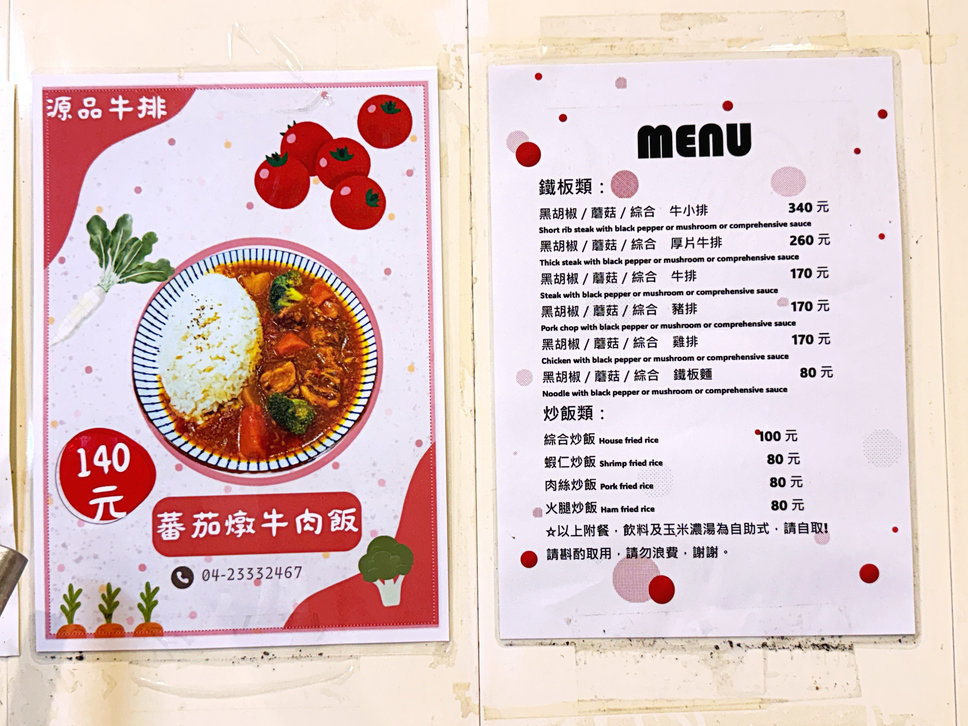 源品牛排
140
元
蕃茄燉牛肉飯
04-23332467
MENU
鐵板類：
黑胡椒 / 蘑菇 / 綜合 牛小排 340 元
Short rib steak with black pepper or mushroom or comprehensive sauce
黑胡椒 / 蘑菇 / 綜合 厚片牛排 260 元
Thick steak with black pepper or mushroom or comprehensive sauce
黑胡椒 / 蘑菇 / 綜合 牛排 170 元
Steak with black pepper or mushroom or comprehensive sauce
黑胡椒 / 蘑菇 / 綜合 豬排 170 元
Pork chop with black pepper or mushroom or comprehensive sauce
黑胡椒 / 蘑菇 / 綜合 雞排 170 元
Chicken with black pepper or mushroom or comprehensive sauce
黑胡椒 / 蘑菇 / 綜合 鐵板麵 80 元
Noodle with black pepper or mushroom or comprehensive sauce
炒飯類：
綜合炒飯 House fried rice 100 元
蝦仁炒飯 Shrimp fried rice 80 元
肉絲炒飯 Pork fried rice 80 元
火腿炒飯 Ham fried rice 80 元
☆以上附餐，飲料及玉米濃湯為自助式，請自取!
請斟酌取用，請勿浪費，謝謝。